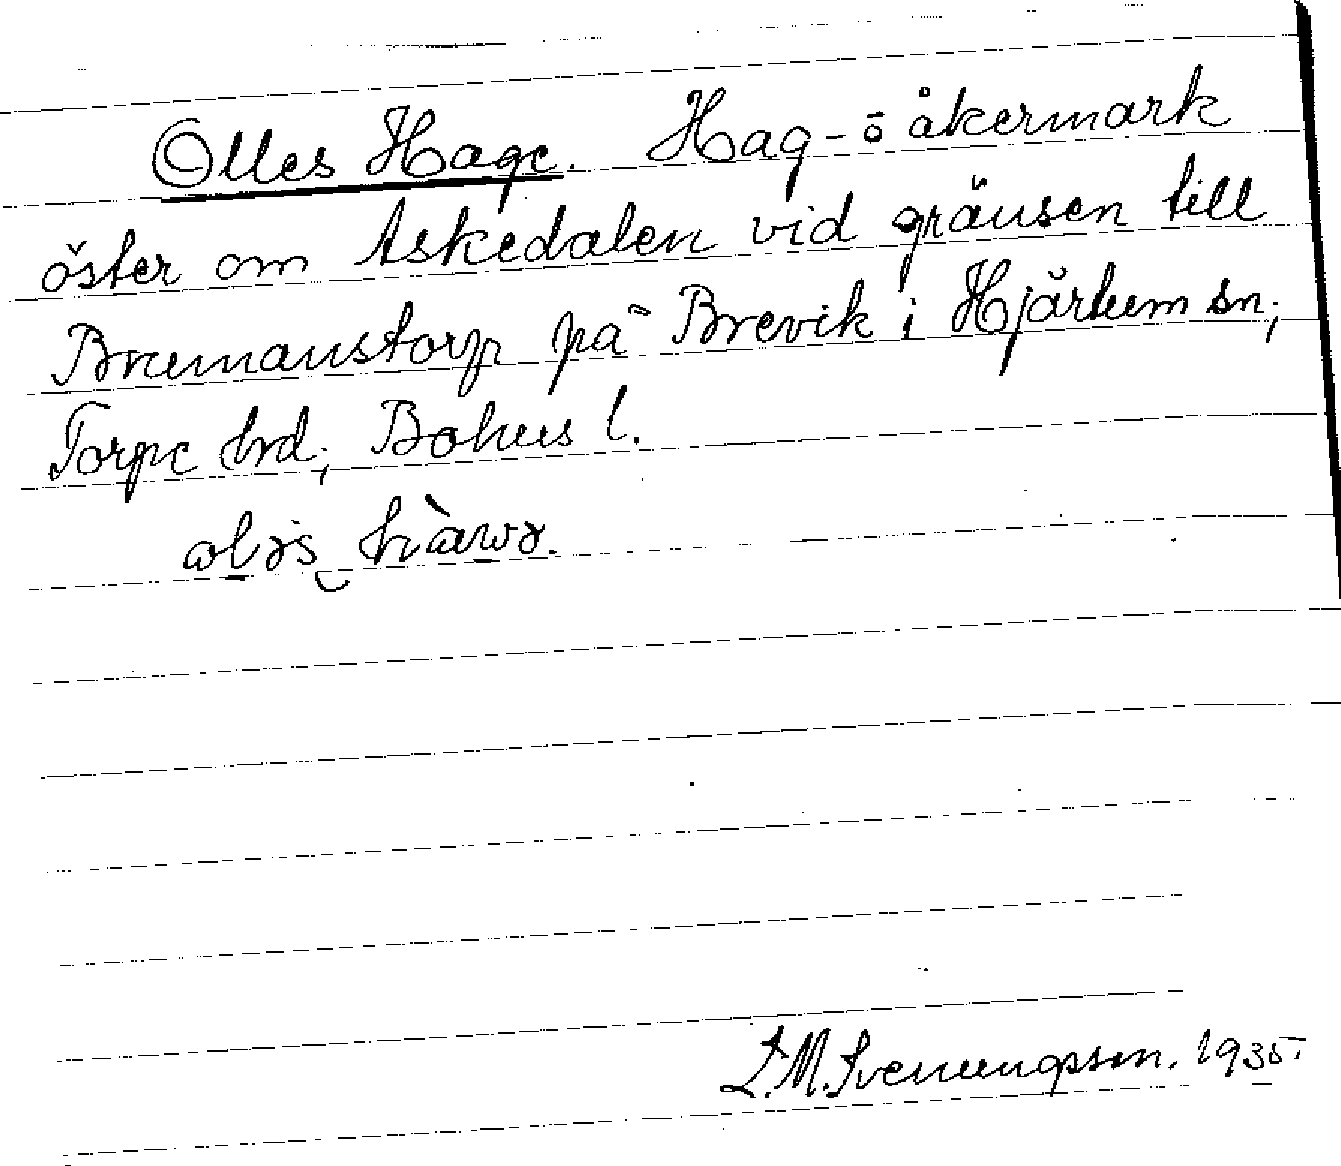 Olles Hage. Hag- o åkermark
öster om Askedalen vid gränsen till
Bremanstorp på Brevik i Hjärtum sn;
Torpe hrd; Bohus l.
L.M. Svenungsson. 1935.